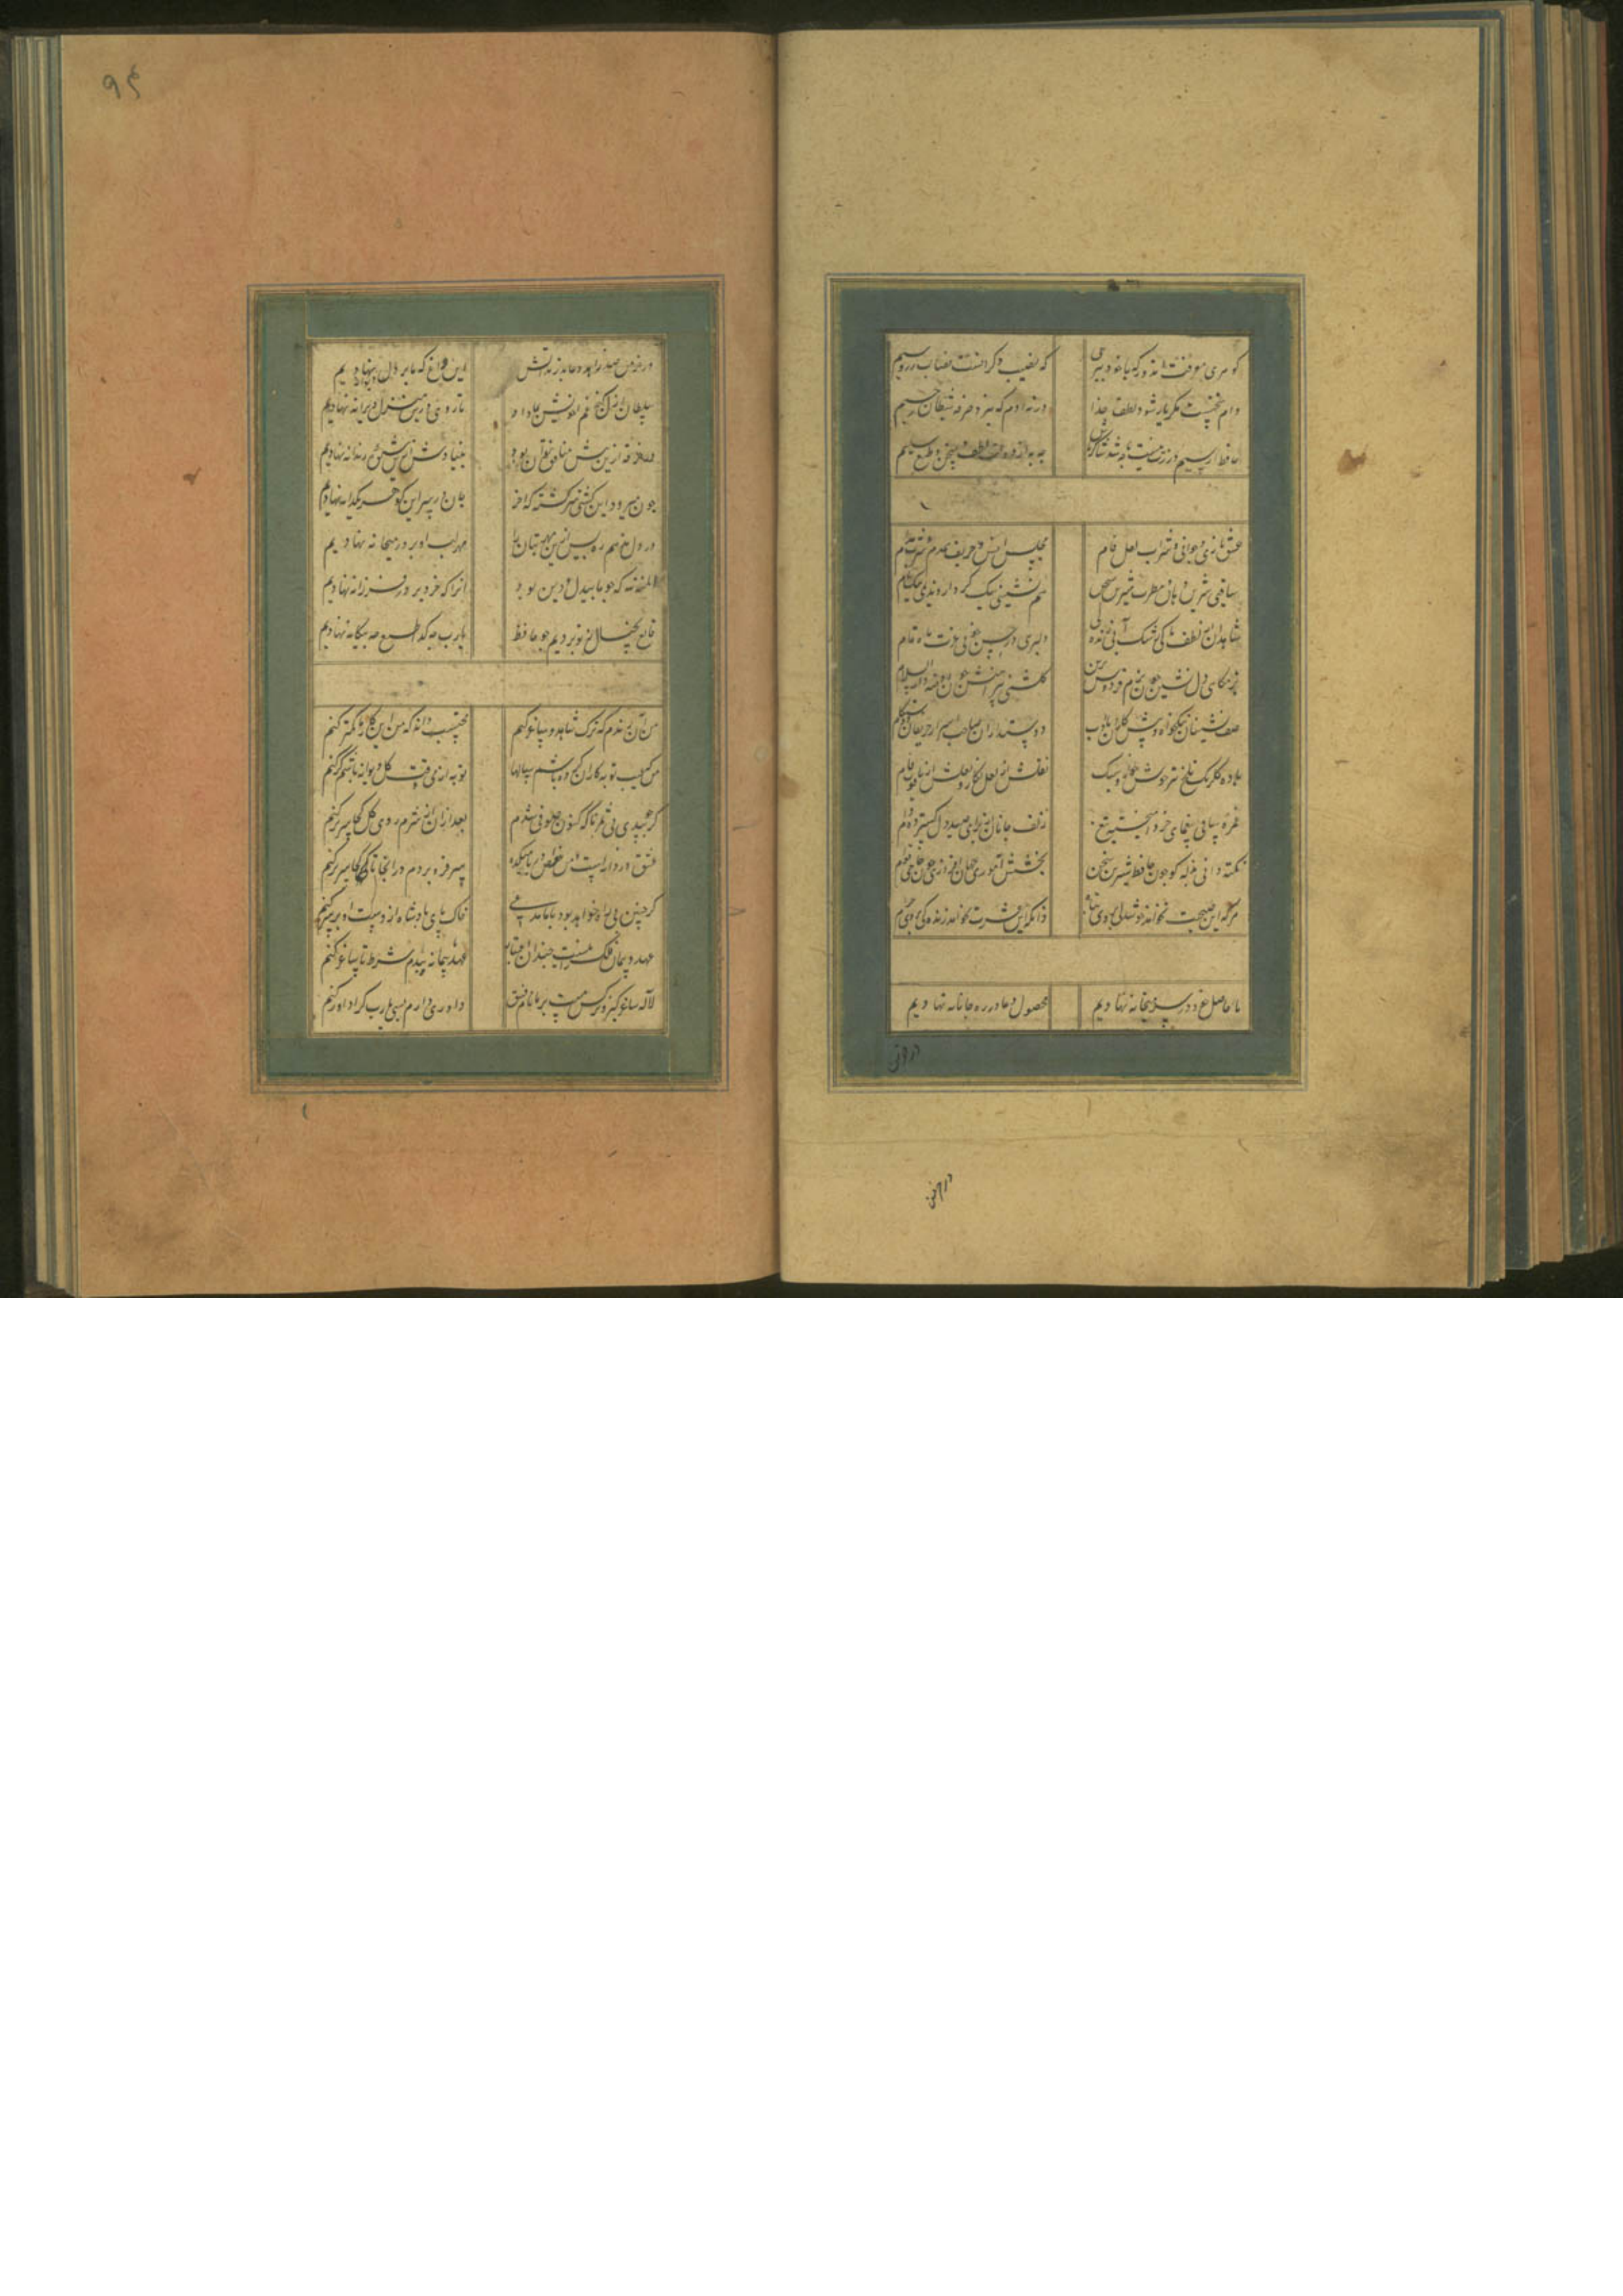 گوهر معرفت اندوز که با خود ببری
که نصیب دگرانست نصاب زر و سیم
دام سختست مگر یار شود لطف خدا
ورنه آدم نبرد صرفه ز شیطان رجیم
حافظ ار سیم و زرت نیست چه شد شاکر باش
چه به از دولت لطف سخن و طبع سلیم
عشق بازی و جوانی و شراب لعل فام
مجلس انس و حریف همدم و شرب مدام
ساقی شیرین دهان و مطرب شیرین سخن
هم نشینی نیک کردار و ندیمی نیک نام
شاهدی از لطف و پاکی رشک آب زندگی
دلبری در حسن و خوبی غیرت ماه تمام
بزمگاهی دل نشین چون بزم فردوس برین
گلشنی پیرامنش چون روضه دار السلام
صف نشینان نیکخواه و پیشکاران با ادب
دوستداران صاحب اسرار و حریفان دوستکام
باده گلرنگ تلخ تیز خوش خوار و سبک
نقلش از لعل نگار و نقلش از یاقوت خام
غمزه ساقی بیغمای خرد آهخته تیغ
زلف جانان از برای صید دل گسترده دام
نکته دانی بذله گو چون حافظ شیرین سخن
بخشش آموزی جهان افروز چون حاجی قوام
هرکه این صحبت نخواهد خوشدلی بروی تباه
وانکه این عشرت نخواهد زندگی بروی حرام
ما حاصل خود در سر میخانه نهادیم
محصول دعا در ره جانانه نهادیم
در خرمن
۹۴
در خرمن صد زاهد و عابد زند آتش
این داغ که ما بر دل دیوانه نهادیم
سلطان ازل گنج غم عشق بما داد
تا روی درین منزل ویرانه نهادیم
در خرقه ازین بیش منافق نتوان بود
بنیادش ازین شیوه رندانه نهادیم
چون میرود این کشتی سرگشته که آخر
جان در سر این گوهر یکدانه نهادیم
در دل ندهم ره پس ازین مهر بتان را
مهر لب او بر در میخانه نهادیم
المنة لله که چو ما بیدل و دین بود
آنرا که خرد پرور و فرزانه نهادیم
قانع بخیالی ز تو بودیم چو حافظ
یارب چه گدا طبع چه بیگانه نهادیم
من نه آن رندم که ترک شاهد و ساغر کنم
محتسب داند که من این کارها کمتر کنم
من که عیب توبه کاران کرده باشم سالها
توبه از می وقت گل دیوانه باشم گر کنم
بعد ازان از شرم روی گل کجا سر بر کنم
عشق دردانه است و من غواص و دریا میکده
سر فرو بردم در انجا تا کجا سر بر کنم
خاک پای پادشاه از دوست او بر سر کنم
عهد و پیمان فلک را نیست چندان اعتبار
عهد با پیمانه بندم شرط با ساغر کنم
لاله ساغر گیر و نرگس مست و بر ما نام فسق
داوری دارم بسی یارب کرا داور کنم